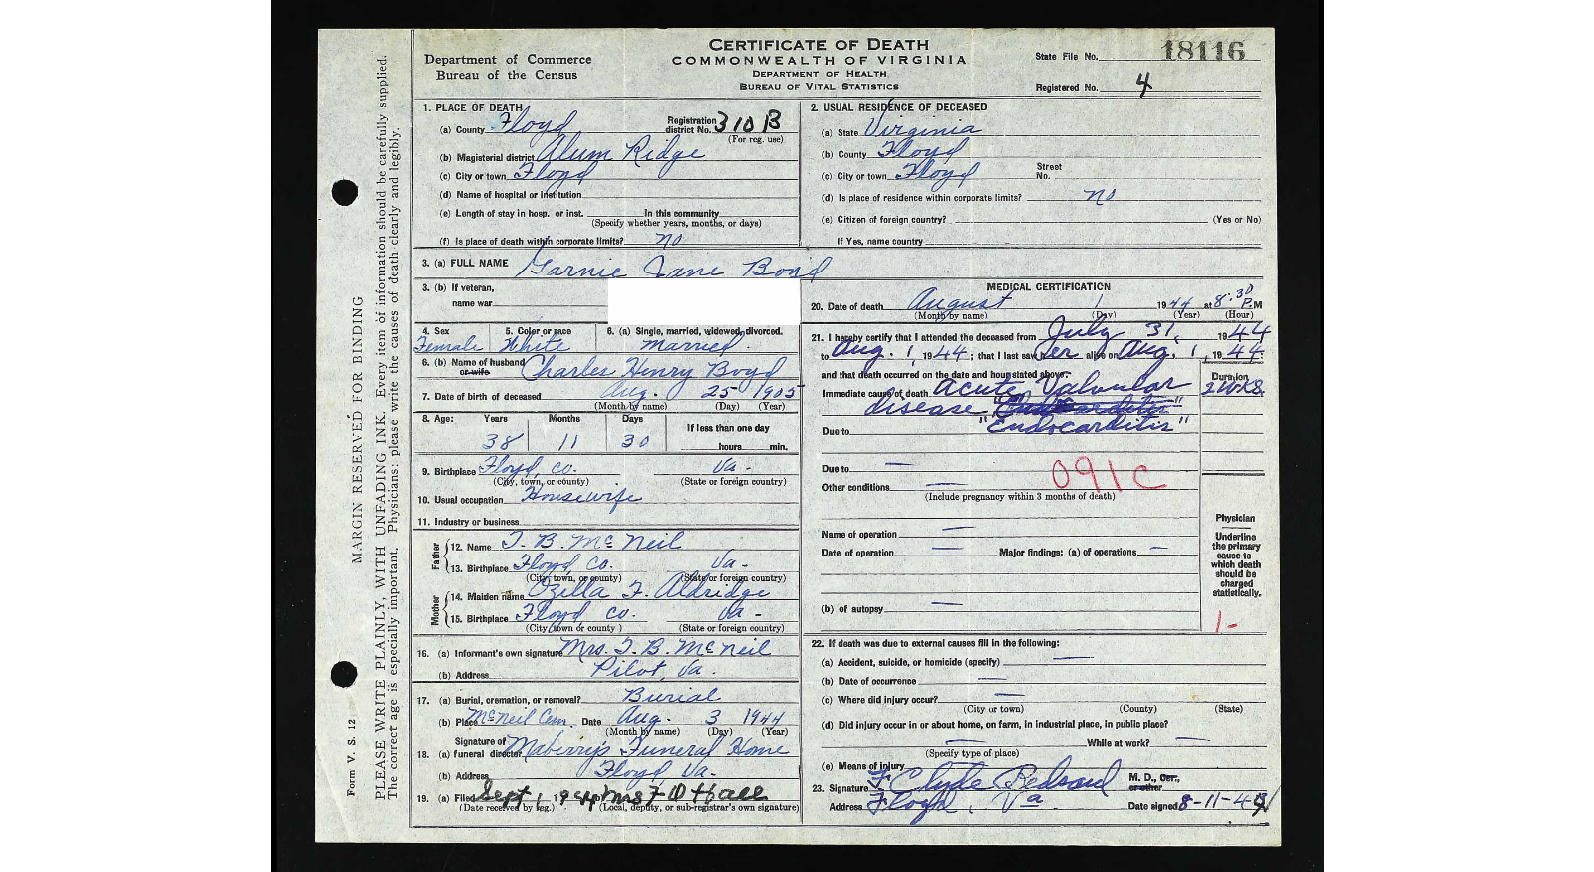 MARGIN RESERVED FOR BINDING
PLEASE WRITE PLAINLY, WITH UNFADING INK. Every item of information should be carefully supplied.
The correct age is especially important. Physicians: please write the causes of death clearly and legibly.
Form V. S. 12
Department of Commerce
Bureau of the Census
CERTIFICATE OF DEATH
COMMONWEALTH OF VIRGINIA
DEPARTMENT OF HEALTH
BUREAU OF VITAL STATISTICS
State File No. 18116
Registered No. 4
1. PLACE OF DEATH
(a) County Floyd Registration district No. 310 B
(For reg. use)
(b) Magisterial district Alum Ridge
(c) City or town Floyd
(d) Name of hospital or institution
(e) Length of stay in hosp. or inst. In this community
(Specify whether years, months, or days)
(f) Is place of death within corporate limits? no
2. USUAL RESIDENCE OF DECEASED
(a) State Virginia
(b) County Floyd
(c) City or town Floyd Street No.
(d) Is place of residence within corporate limits? no
(e) Citizen of foreign country? (Yes or No)
If Yes, name country
3. (a) FULL NAME Garnie Jane Boyd
3. (b) If veteran,
name war
4. Sex 5. Color or race 6. (a) Single, married, widowed, divorced.
Female White married.
6. (b) Name of husband or wife Charles Henry Boyd
7. Date of birth of deceased Aug. 25 1905
(Month by name) (Day) (Year)
8. Age: Years Months Days If less than one day
38 11 30 hours min.
9. Birthplace Floyd, co. Va-
(City, town, or county) (State or foreign country)
10. Usual occupation Housewife
11. Industry or business
Father
12. Name T. B. McNeil
13. Birthplace Floyd Co. Va-
(City, town, or county) (State or foreign country)
Mother
14. Maiden name Ozilla F. Aldridge
15. Birthplace Floyd co. Va-
(City town or county ) (State or foreign country)
16. (a) Informant's own signature Mrs. T. B. McNeil
(b) Address Pilot, Va.
17. (a) Burial, cremation, or removal? Burial
(b) Place McNeil Cem. Date Aug. 3 1944
(Month by name) (Day) (Year)
18. (a) Signature of funeral director Maberry's Funeral Home
(b) Address Floyd Va-
19. (a) Filed Sept 1, 1944 Mrs F D Hall
(Date received by reg.) (Local, deputy, or sub-registrar's own signature)
MEDICAL CERTIFICATION
20. Date of death August 1 1944 at 8:30 P.M
(Month by name) (Day) (Year) (Hour)
21. I hereby certify that I attended the deceased from July 31, 1944
to Aug. 1, 1944; that I last saw her alive on Aug. 1, 1944.
and that death occurred on the date and hour stated above.
Duration
Immediate cause of death Acute Valvular 2 wks
disease
Due to "Endocarditis"
Due to —
091C
Other conditions —
(Include pregnancy within 3 months of death)
Name of operation —
Date of operation — Major findings: (a) of operations —
(b) of autopsy —
Physician
Underline the primary cause to which death should be charged statistically.
1-
22. If death was due to external causes fill in the following:
(a) Accident, suicide, or homicide (specify) —
(b) Date of occurrence —
(c) Where did injury occur? —
(City or town) (County) (State)
(d) Did injury occur in or about home, on farm, in industrial place, in public place?
— While at work? —
(Specify type of place)
(e) Means of injury
23. Signature F. Clyde Bedsaul M. D., Cor., or other
Address Floyd, Va Date signed 8-11-44